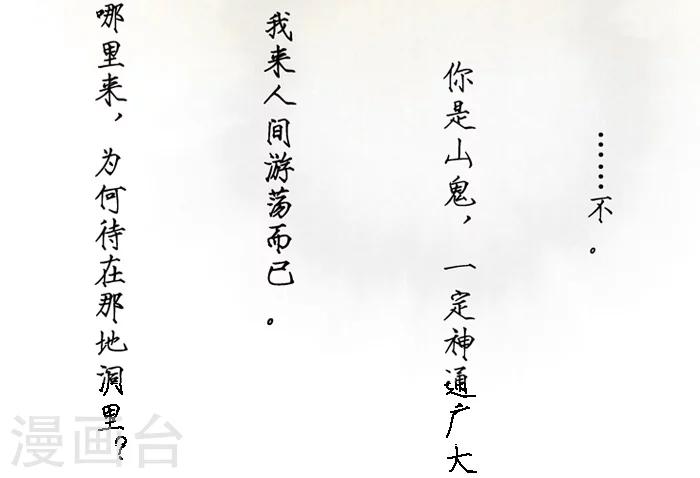 ……不。
你是山鬼，一定神通广大
我来人间游荡而已。
哪里来，为何待在那地洞里？
漫画台